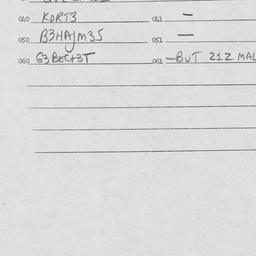 040 KDRT3 041 —
050 B3HAJM35 051 —
060 G3BECT3T 061 —BUT 212 MAL